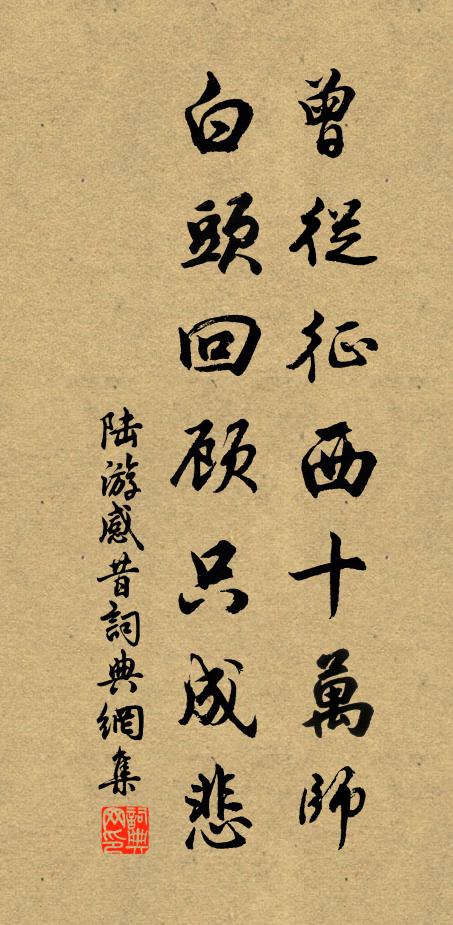 曾從征西十萬師
白頭回顧只成悲
陸游感昔詞典網集
詞典網印